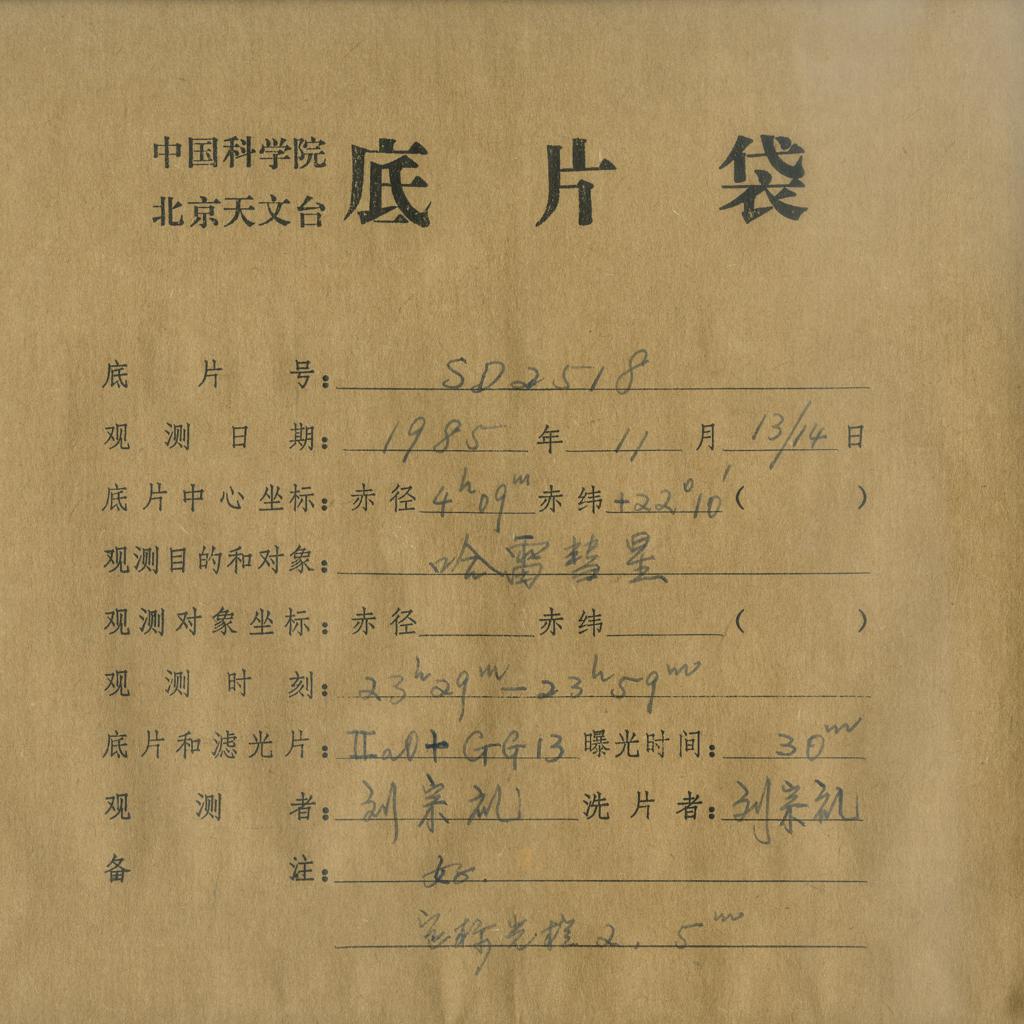 中国科学院
北京天文台
底片袋
底片号：SD2518
观测日期：1985年11月13/14日
底片中心坐标：赤径4ʰ09ᵐ赤纬+22°10′（ ）
观测目的和对象：哈雷彗星
观测对象坐标：赤径 赤纬 （ ）
观测时刻：23ʰ29ᵐ—23ʰ59ᵐ
底片和滤光片：IIaO+GG13 曝光时间：30ᵐ
观测者：刘宗礼 洗片者：刘宗礼
备注：好.
光栏2.5ᵐ